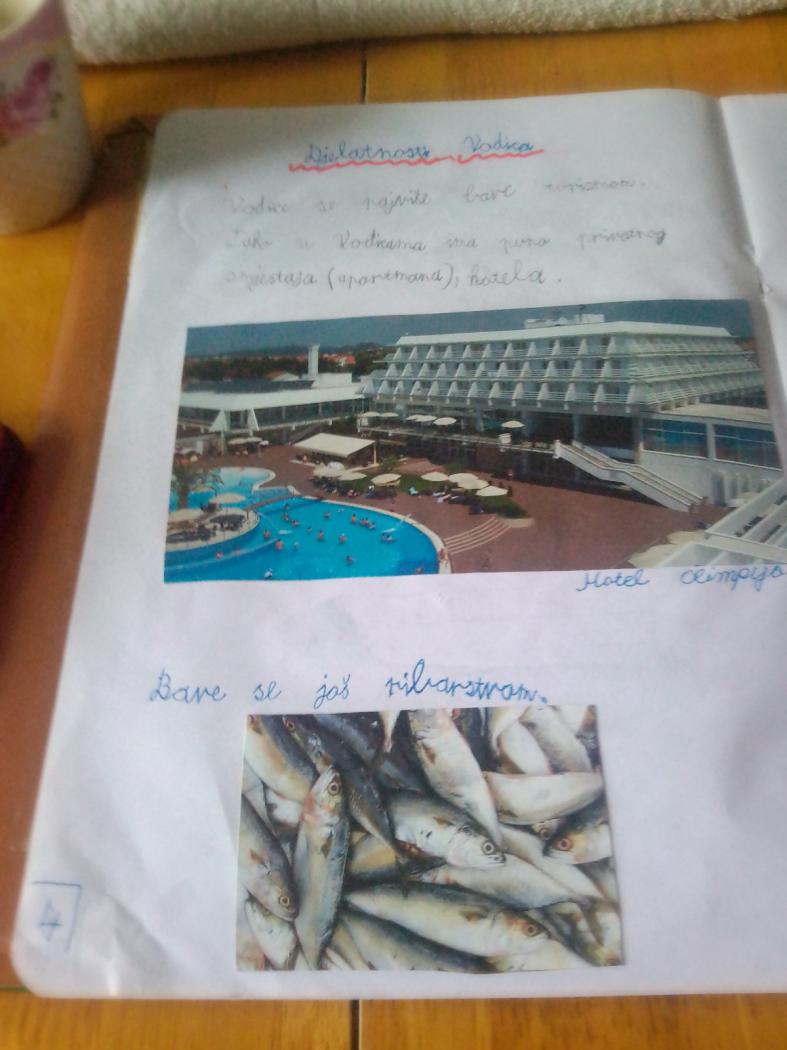 Djelatnosti Vodica
Vodice se najviše bave turizmom.
Tako u Vodicama ima puno privatnog
smještaja (apartmana), hotela.
Hotel Olimpija
Bave se još ribarstvom.
4